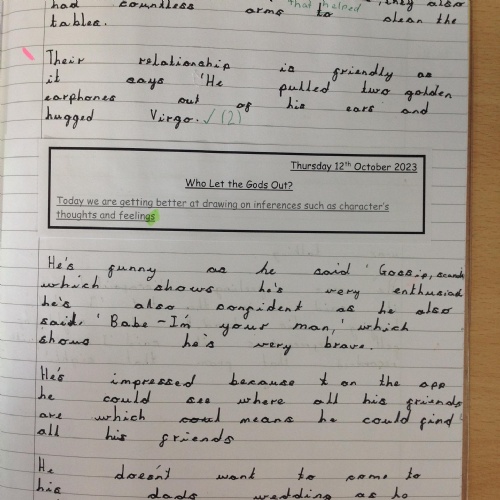 had countless arms to clean the
that helped
, they also
tables.
Their relationship is friendly as
it says 'He pulled two golden
earphones out of his ears and
hugged Virgo. ✓ (2)
Thursday 12th October 2023
Who Let the Gods Out?
Today we are getting better at drawing on inferences such as character's
thoughts and feelings
He's funny as he said 'Gossip,
which shows he's very enthusiad
he's also confident as he also
said, 'Babe - I'm your man,' which
shows he's very brave.
He's impressed because on the app
he could see where all his friends
are which means he could find
all his friends
He doesn't want to come to
his dads wedding as he